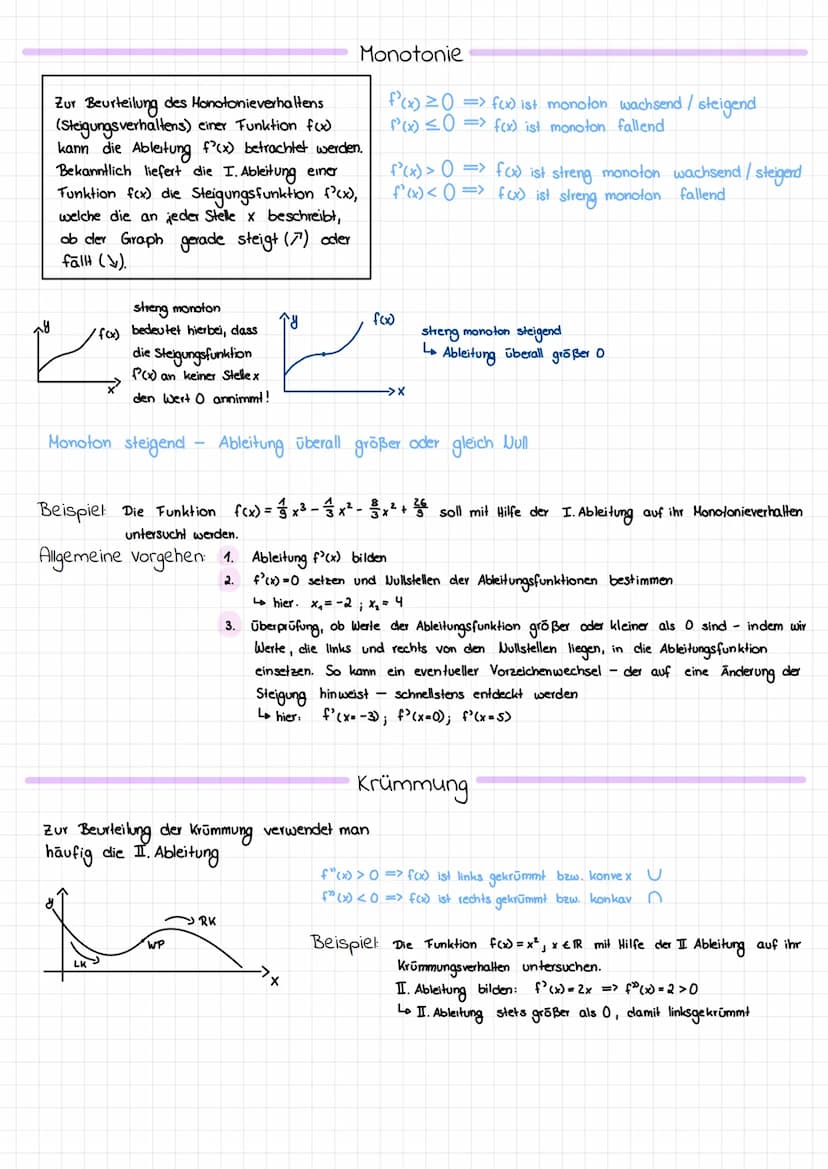 Monotonie
Zur Beurteilung des Monotonieverhaltens
(Steigungsverhaltens) einer Funktion f(x)
kann die Ableitung f'(x) betrachtet werden.
Bekanntlich liefert die I. Ableitung einer
Funktion f(x) die Steigungsfunktion f'(x),
welche die an jeder Stelle x beschreibt,
ob der Graph gerade steigt (↗) oder
fällt (↘).
f'(x) ≥ 0 => f(x) ist monoton wachsend / steigend
f'(x) ≤ 0 => f(x) ist monoton fallend
f'(x) > 0 => f(x) ist streng monoton wachsend / steigend
f'(x) < 0 => f(x) ist streng monoton fallend
y
f(x)
x
streng monoton
bedeutet hierbei, dass
die Steigungsfunktion
f'(x) an keiner Stelle x
den Wert 0 annimmt!
y
f(x)
x
streng monoton steigend
↳ Ableitung überall größer 0
Monoton steigend – Ableitung überall größer oder gleich Null
Beispiel: Die Funktion f(x) = 1/9 x³ - 1/3 x² - 8/3 x² + 26/9 soll mit Hilfe der I. Ableitung auf ihr Monotonieverhalten
untersucht werden.
Allgemeine vorgehen: 1. Ableitung f'(x) bilden
2. f'(x) = 0 setzen und Nullstellen der Ableitungsfunktionen bestimmen
↳ hier: x₁ = -2 ; x₂ = 4
3. Überprüfung, ob Werte der Ableitungsfunktion größer oder kleiner als 0 sind – indem wir
Werte, die links und rechts von den Nullstellen liegen, in die Ableitungsfunktion
einsetzen. So kann ein eventueller Vorzeichenwechsel – der auf eine Änderung der
Steigung hinweist – schnellstens entdeckt werden
↳ hier: f'(x=-3); f'(x=0); f'(x=5)
Krümmung
Zur Beurteilung der Krümmung verwendet man
häufig die II. Ableitung
f''(x) > 0 => f(x) ist links gekrümmt bzw. konvex ∪
f''(x) < 0 => f(x) ist rechts gekrümmt bzw. konkav ∩
y
LK
WP
RK
x
Beispiel: Die Funktion f(x) = x², x ∈ ℝ mit Hilfe der II Ableitung auf ihr
Krümmungsverhalten untersuchen.
II. Ableitung bilden: f'(x) = 2x => f''(x) = 2 > 0
↳ II. Ableitung stets größer als 0, damit linksgekrümmt